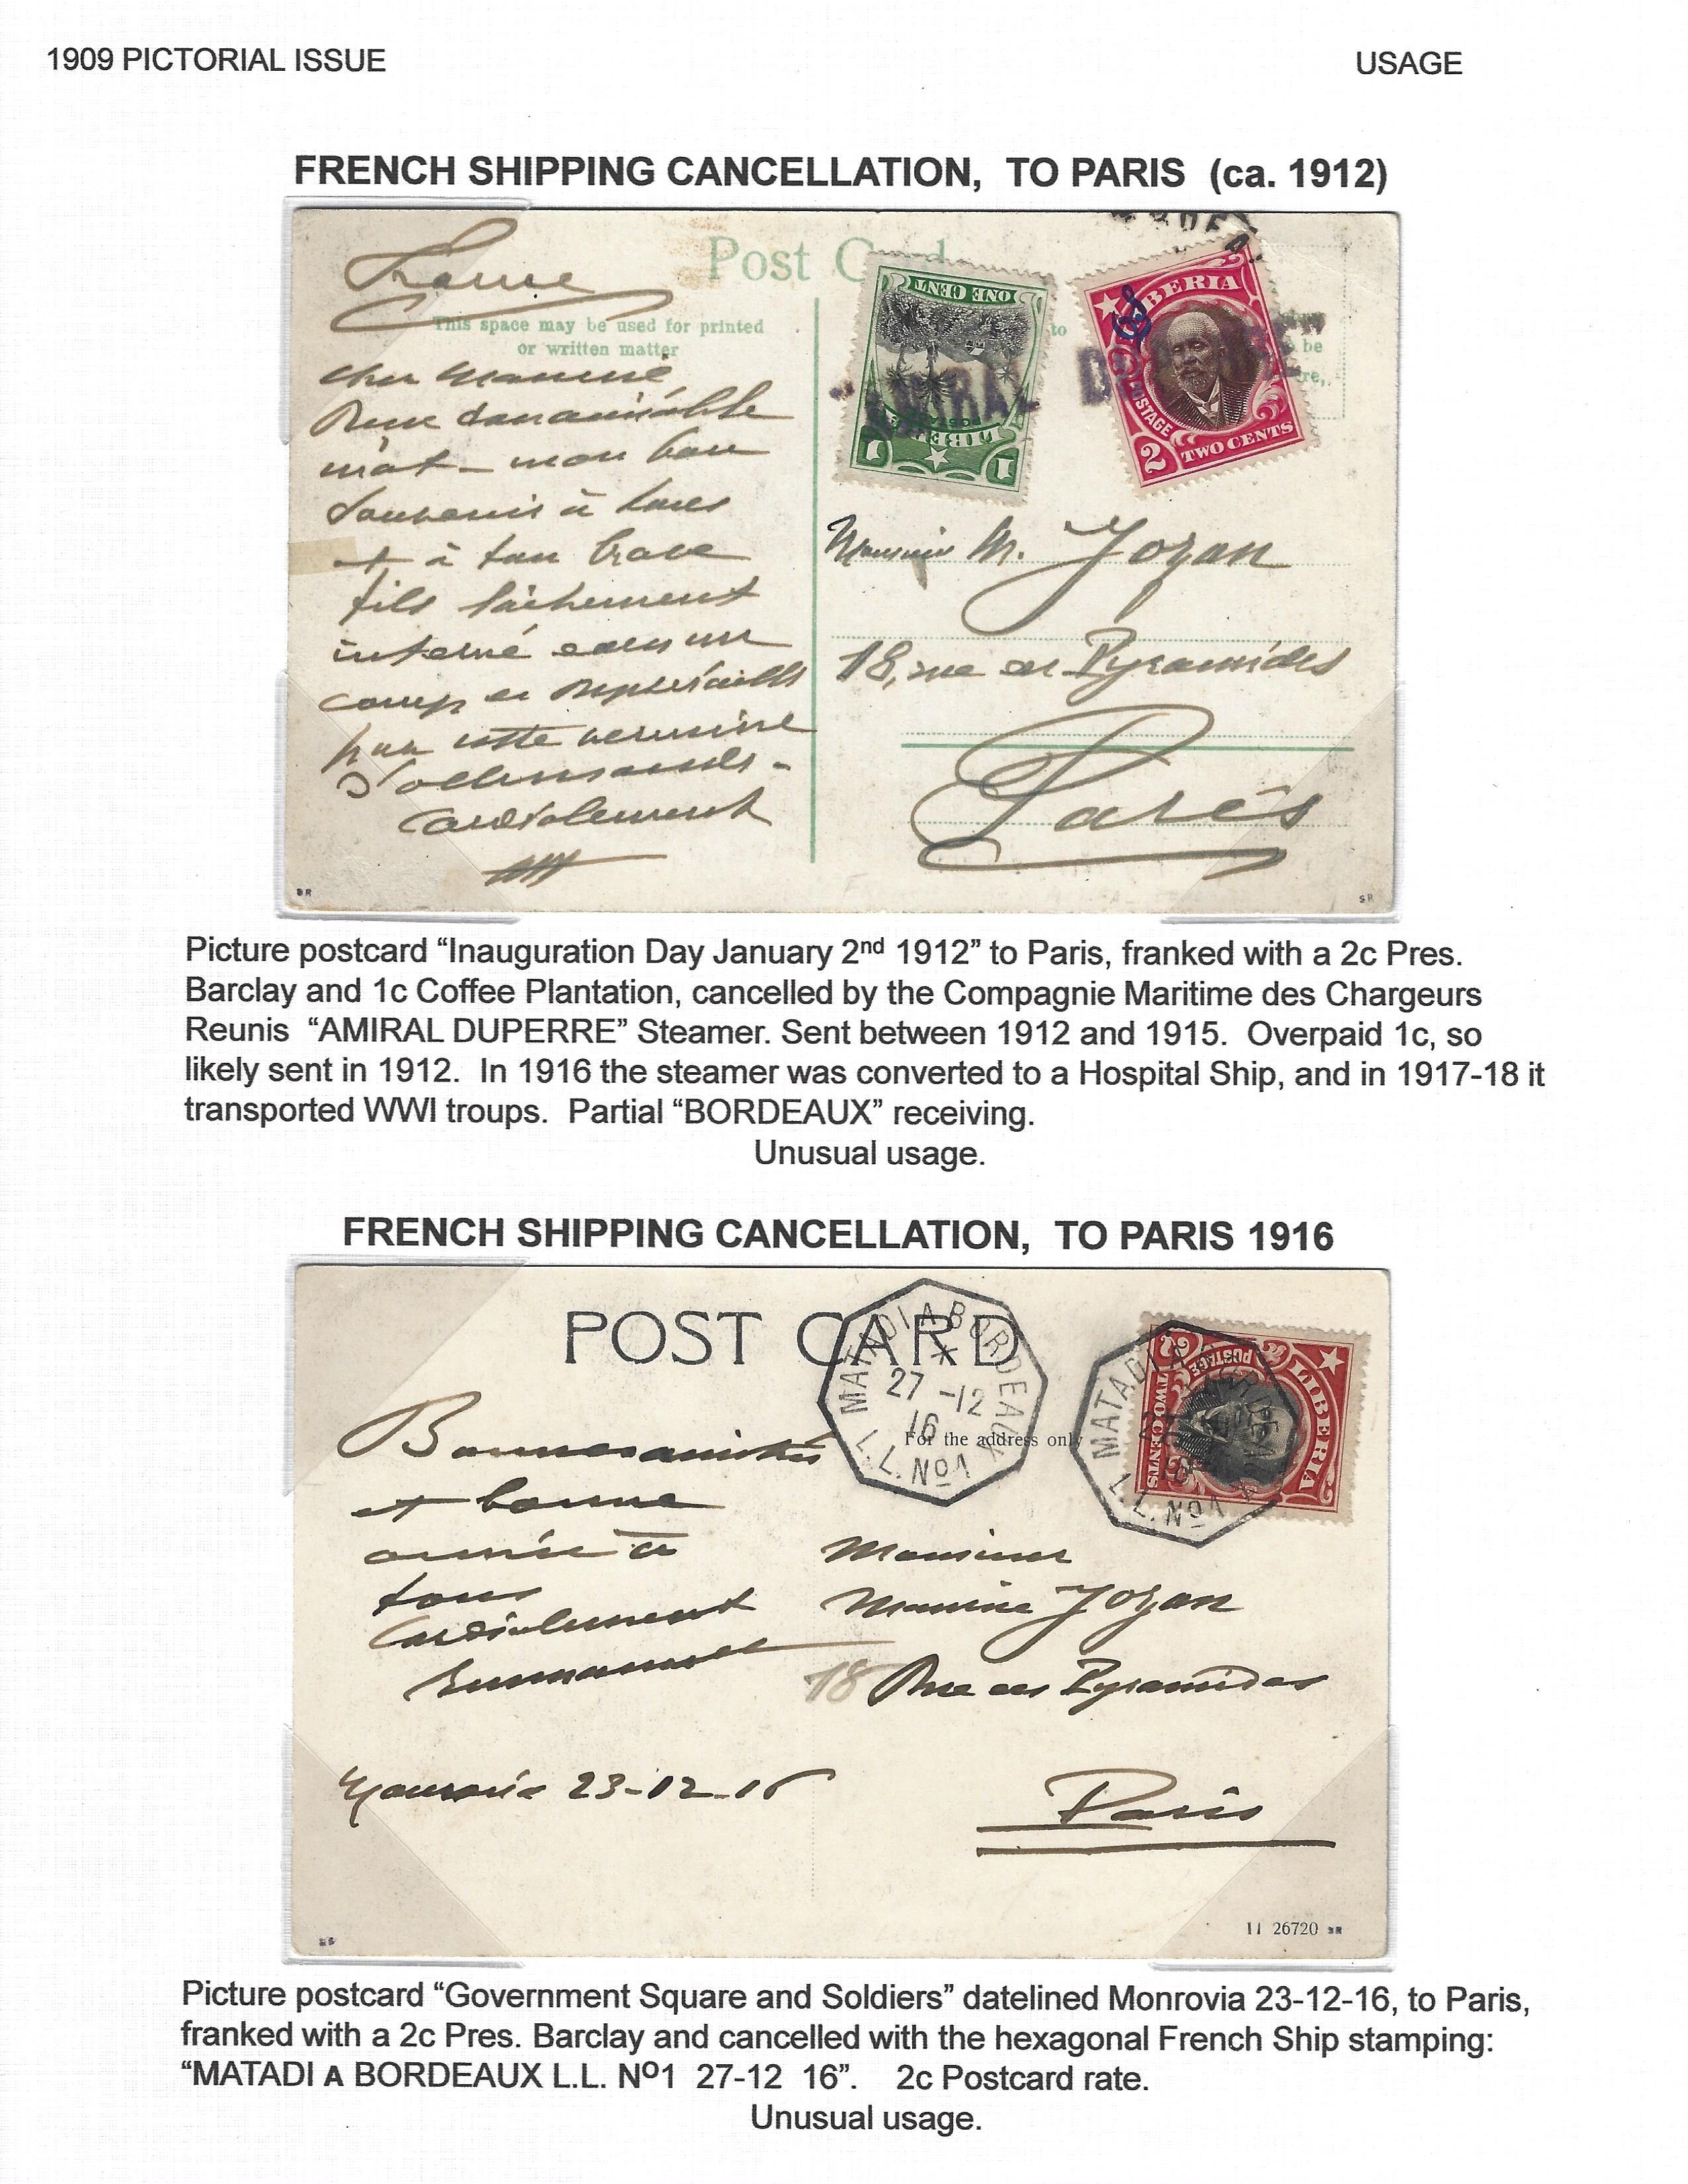 1909 PICTORIAL ISSUE
USAGE
FRENCH SHIPPING CANCELLATION, TO PARIS (ca. 1912)
Post Card
This space may be used for printed
or written matter
to
be
ONE CENT
LIBERIA
1 1
BERIA
POSTAGE
2 TWO CENTS
AMIRAL DUPERRE
France
Cher Maurice
mot - mon bon
souvenir à tous
et à ton brave
fils lâchement
interné dans un
camp de représailles
par cette vermine
d'allemands -
Cordialement
Monsieur M. Jozan
18, rue des Pyramides
Paris
SR
SR
Picture postcard “Inauguration Day January 2nd 1912” to Paris, franked with a 2c Pres.
Barclay and 1c Coffee Plantation, cancelled by the Compagnie Maritime des Chargeurs
Reunis “AMIRAL DUPERRE” Steamer. Sent between 1912 and 1915. Overpaid 1c, so
likely sent in 1912. In 1916 the steamer was converted to a Hospital Ship, and in 1917-18 it
transported WWI troups. Partial “BORDEAUX” receiving.
Unusual usage.
FRENCH SHIPPING CANCELLATION, TO PARIS 1916
POST CARD
MATADI A BORDEAUX
27 -12
16
L.L. Nº1
For the address only
MATADI A BORDEAUX
L.L. Nº1
LIBERIA
POSTAGE
TWO CENTS
2
Bonnes amitiés
et bonne
année à
tous
Cordialement
Emmanuel
Monsieur
Maurice Jozan
18 Rue des Pyramides
Monrovia 23-12-16
Paris
11 26720
Picture postcard “Government Square and Soldiers” datelined Monrovia 23-12-16, to Paris,
franked with a 2c Pres. Barclay and cancelled with the hexagonal French Ship stamping:
“MATADI A BORDEAUX L.L. Nº1 27-12 16”. 2c Postcard rate.
Unusual usage.